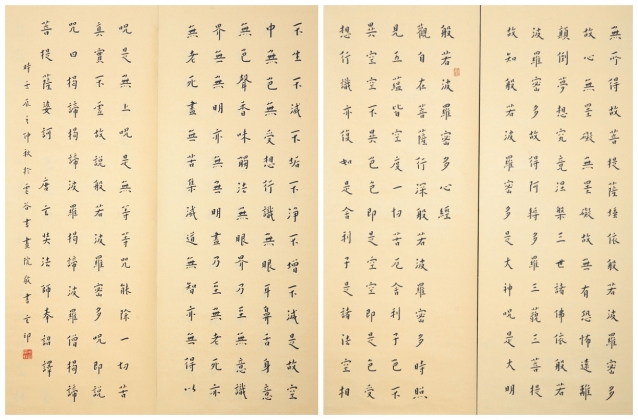 般若波羅密多心經
觀自在菩薩行深般若波羅密多時照
見五蘊皆空度一切苦厄舍利子色不
異空空不異色色即是空空即是色受
想行識亦復如是舍利子是諸法空相
不生不滅不垢不淨不增不減是故空
中無色無受想行識無眼耳鼻舌身意
無色聲香味觸法無眼界乃至無意識
界無無明亦無無明盡乃至無老死亦
無老死盡無苦集滅道無智亦無得以
無所得故菩提薩埵依般若波羅密多
故心無罣礙無罣礙故無有恐怖遠離
顛倒夢想究竟涅槃三世諸佛依般若
波羅密多故得阿耨多羅三藐三菩提
故知般若波羅密多是大神呪是大明
呪是無上呪是無等等呪能除一切苦
真實不虛故說般若波羅密多呪即說
呪曰揭諦揭諦波羅揭諦波羅僧揭諦
菩提薩婆訶 唐玄奘法師奉詔譯
時壬辰之仲秋於雲谷書畫院敬書